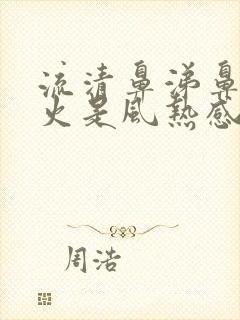 流清鼻涕鼻
火是風熱感
周浩